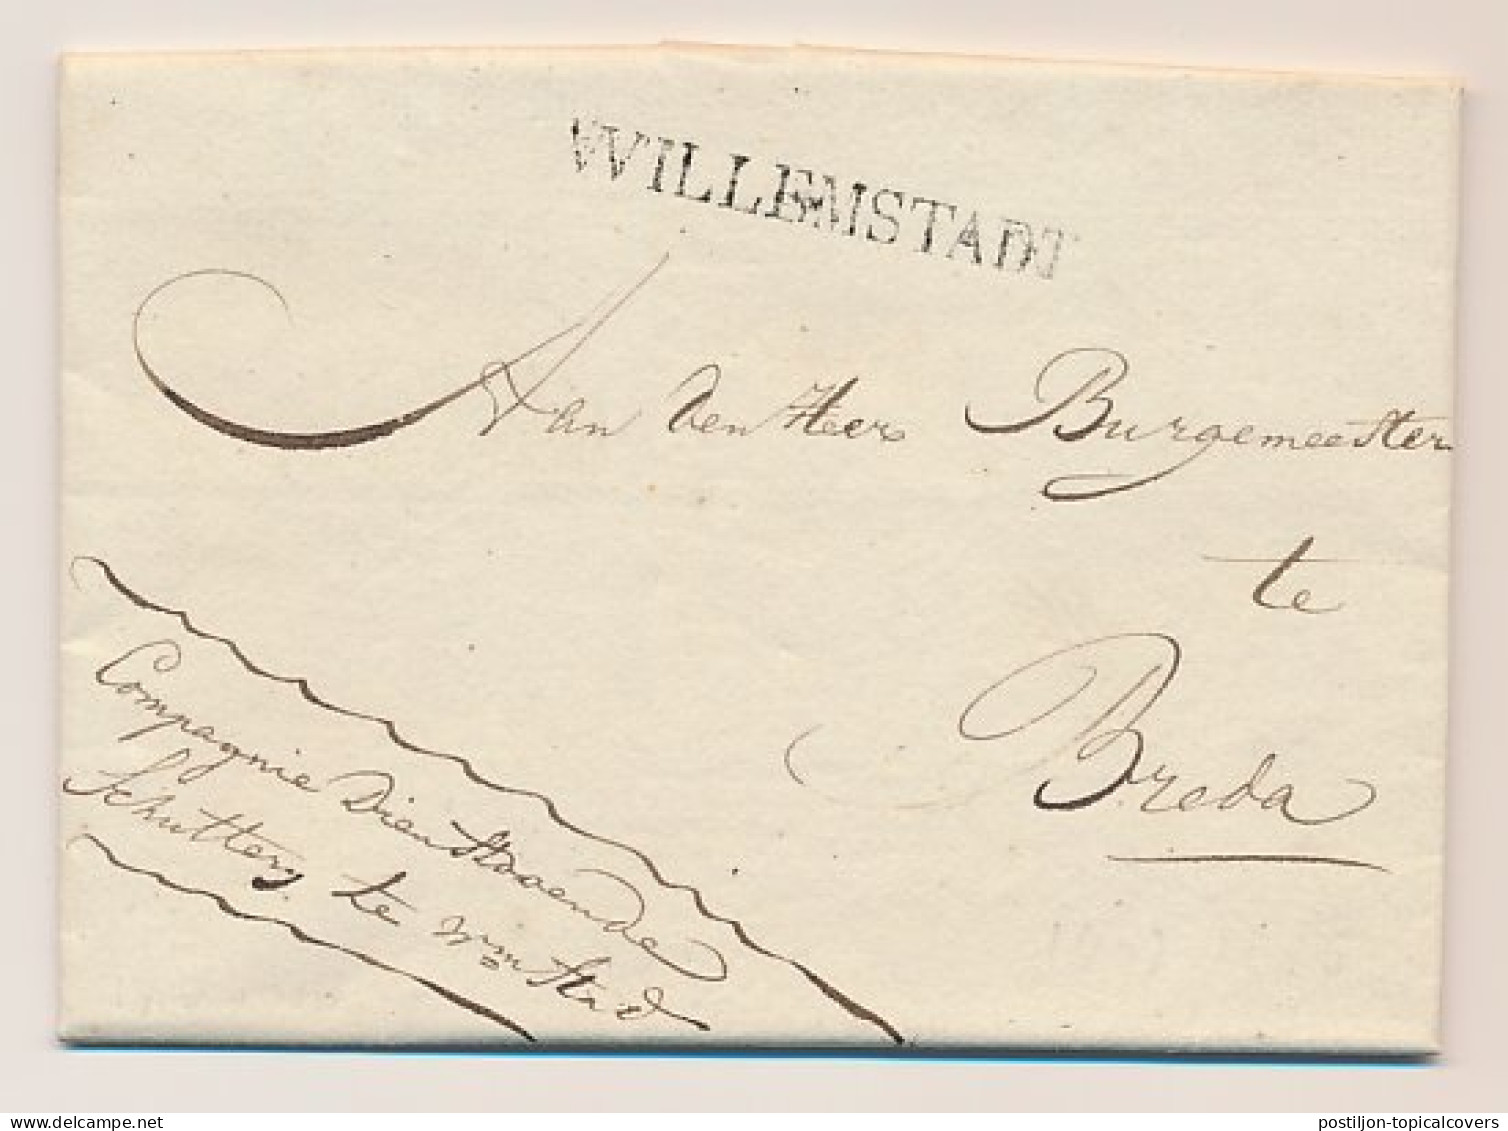 WILLEMSTADT
Aan den Heer Burgemeester
te
Breda
Compagnie Dienstdoende
Schuttery te Wm Stad
delcampe.net
postiljon-topicalcovers